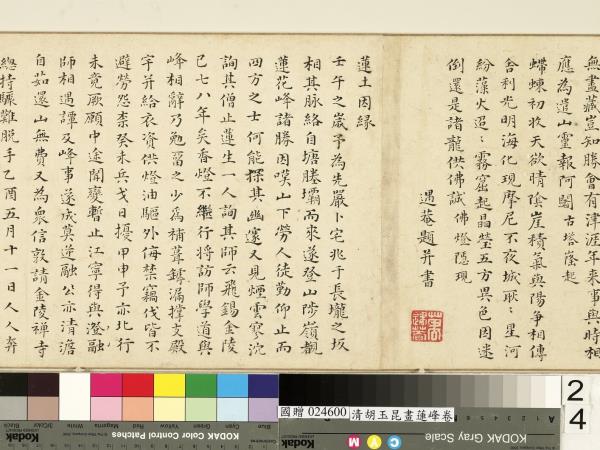 無盡藏豈知勝會有津涯年來事與時相
應為遣山靈報阿閦古塔落起
蝃蝀初收天欲晴陰崖積氣與陽爭相傳
舍利光明海化現摩尼不夜城耿〻星河
紛藻火迢〻霧窟起晶瑩五方異色因迷
倒還是諸龍供佛誠佛燈隱現
遇菴題并書
蓮土因緣
壬午之歲予為先嚴卜宅兆于長壠之坂
相其脉絡自塘塍壩而來遂登山陟嶺觀
蓮花峰諸勝因嘆山下勞人徒勤仰止而
四方之士何能探其幽邃又見煙雲寥沈
詢其僧止蓮生一人詢其師云飛錫金陵
已七八年矣香燈不繼行將訪師學道與
峰相辭乃勉留之少為補葺罅漏撑支殿
宇并給衣資供燈油驅外侮禁竊伐皆不
避勞怨柰癸未兵戈日擾甲申予亦北行
未竟厥願中途聞變暫止江寧得與澄融
師相遇譚及峰事遂成莫逆融公亦清澹
自茹還山無費又為眾信敦請金陵禪寺
總持驟難脫手乙酉五月十一日人人奔
國贈 024600 清胡玉昆畫蓮峰卷
24
Kodak
KODAK Color Control Patches
Blue Cyan Green Yellow Red Magenta White 3/Color Black
KODAK Gray Scale
Kodak
C Y M
A